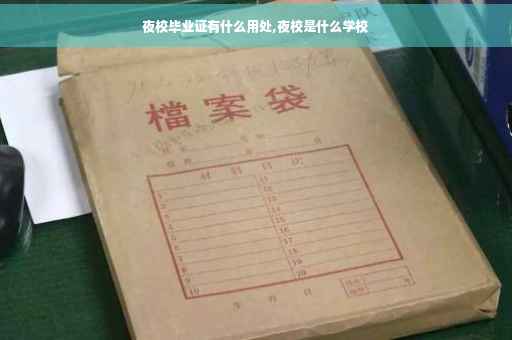 夜校毕业证有什么用处,夜校是什么学校
檔案袋
材料目次
1 11
2 12
3 13
4 14
5 15
6 16
7 17
8 18
9 19
10 20
年 月 日